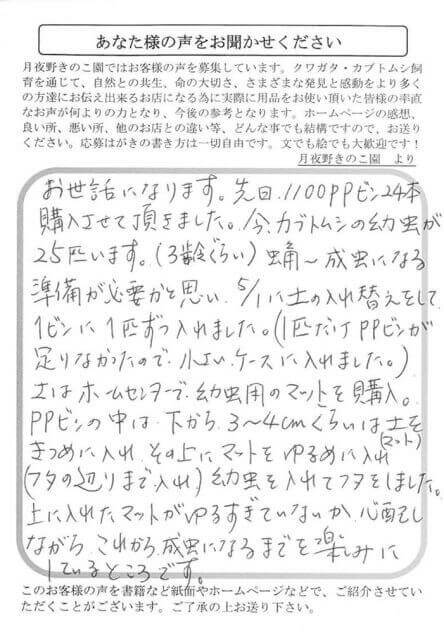 あなた様の声をお聞かせください
月夜野きのこ園ではお客様の声を募集しています。クワガタ・カブトムシ飼
育を通じて、自然との共生、命の大切さ、さまざまな発見と感動をより多く
の方達にお伝え出来るお店になる為に実際に用品をお使い頂いた皆様の率直
なお声が何よりの力となり、今後の参考となります。ホームページの感想、
良い所、悪い所、他のお店との違い等、どんな事でも結構ですので、お送り
ください。応募はがきの書き方は一切自由です。文でも絵でも大歓迎です！
月夜野きのこ園　より
お世話になります。先日、1100PPビン24本
購入させて頂きました。今、カブトムシの幼虫が
25匹います。(3齢ぐらい) 蛹〜成虫になる
準備が必要かと思い、5/1に土の入れ替えをして
1ビンに1匹ずつ入れました。(1匹だけPPビンが
足りなかったので、小さいケースに入れました。)
土はホームセンターで、幼虫用のマットを購入。
PPビンの中は、下から、3〜4cmくらいは土を
(マット)
きつめに入れ、その上にマットをゆるめに入れ
(フタの辺りまで、入れ) 幼虫を入れてフタをしました。
上に入れたマットがゆるすぎていないか、心配し
ながら、これから、成虫になるまでを楽しみに
しているところです。
このお客様の声を書籍など紙面やホームページなどで、ご紹介させてい
ただくことがございます。ご了承の上お送り下さい。